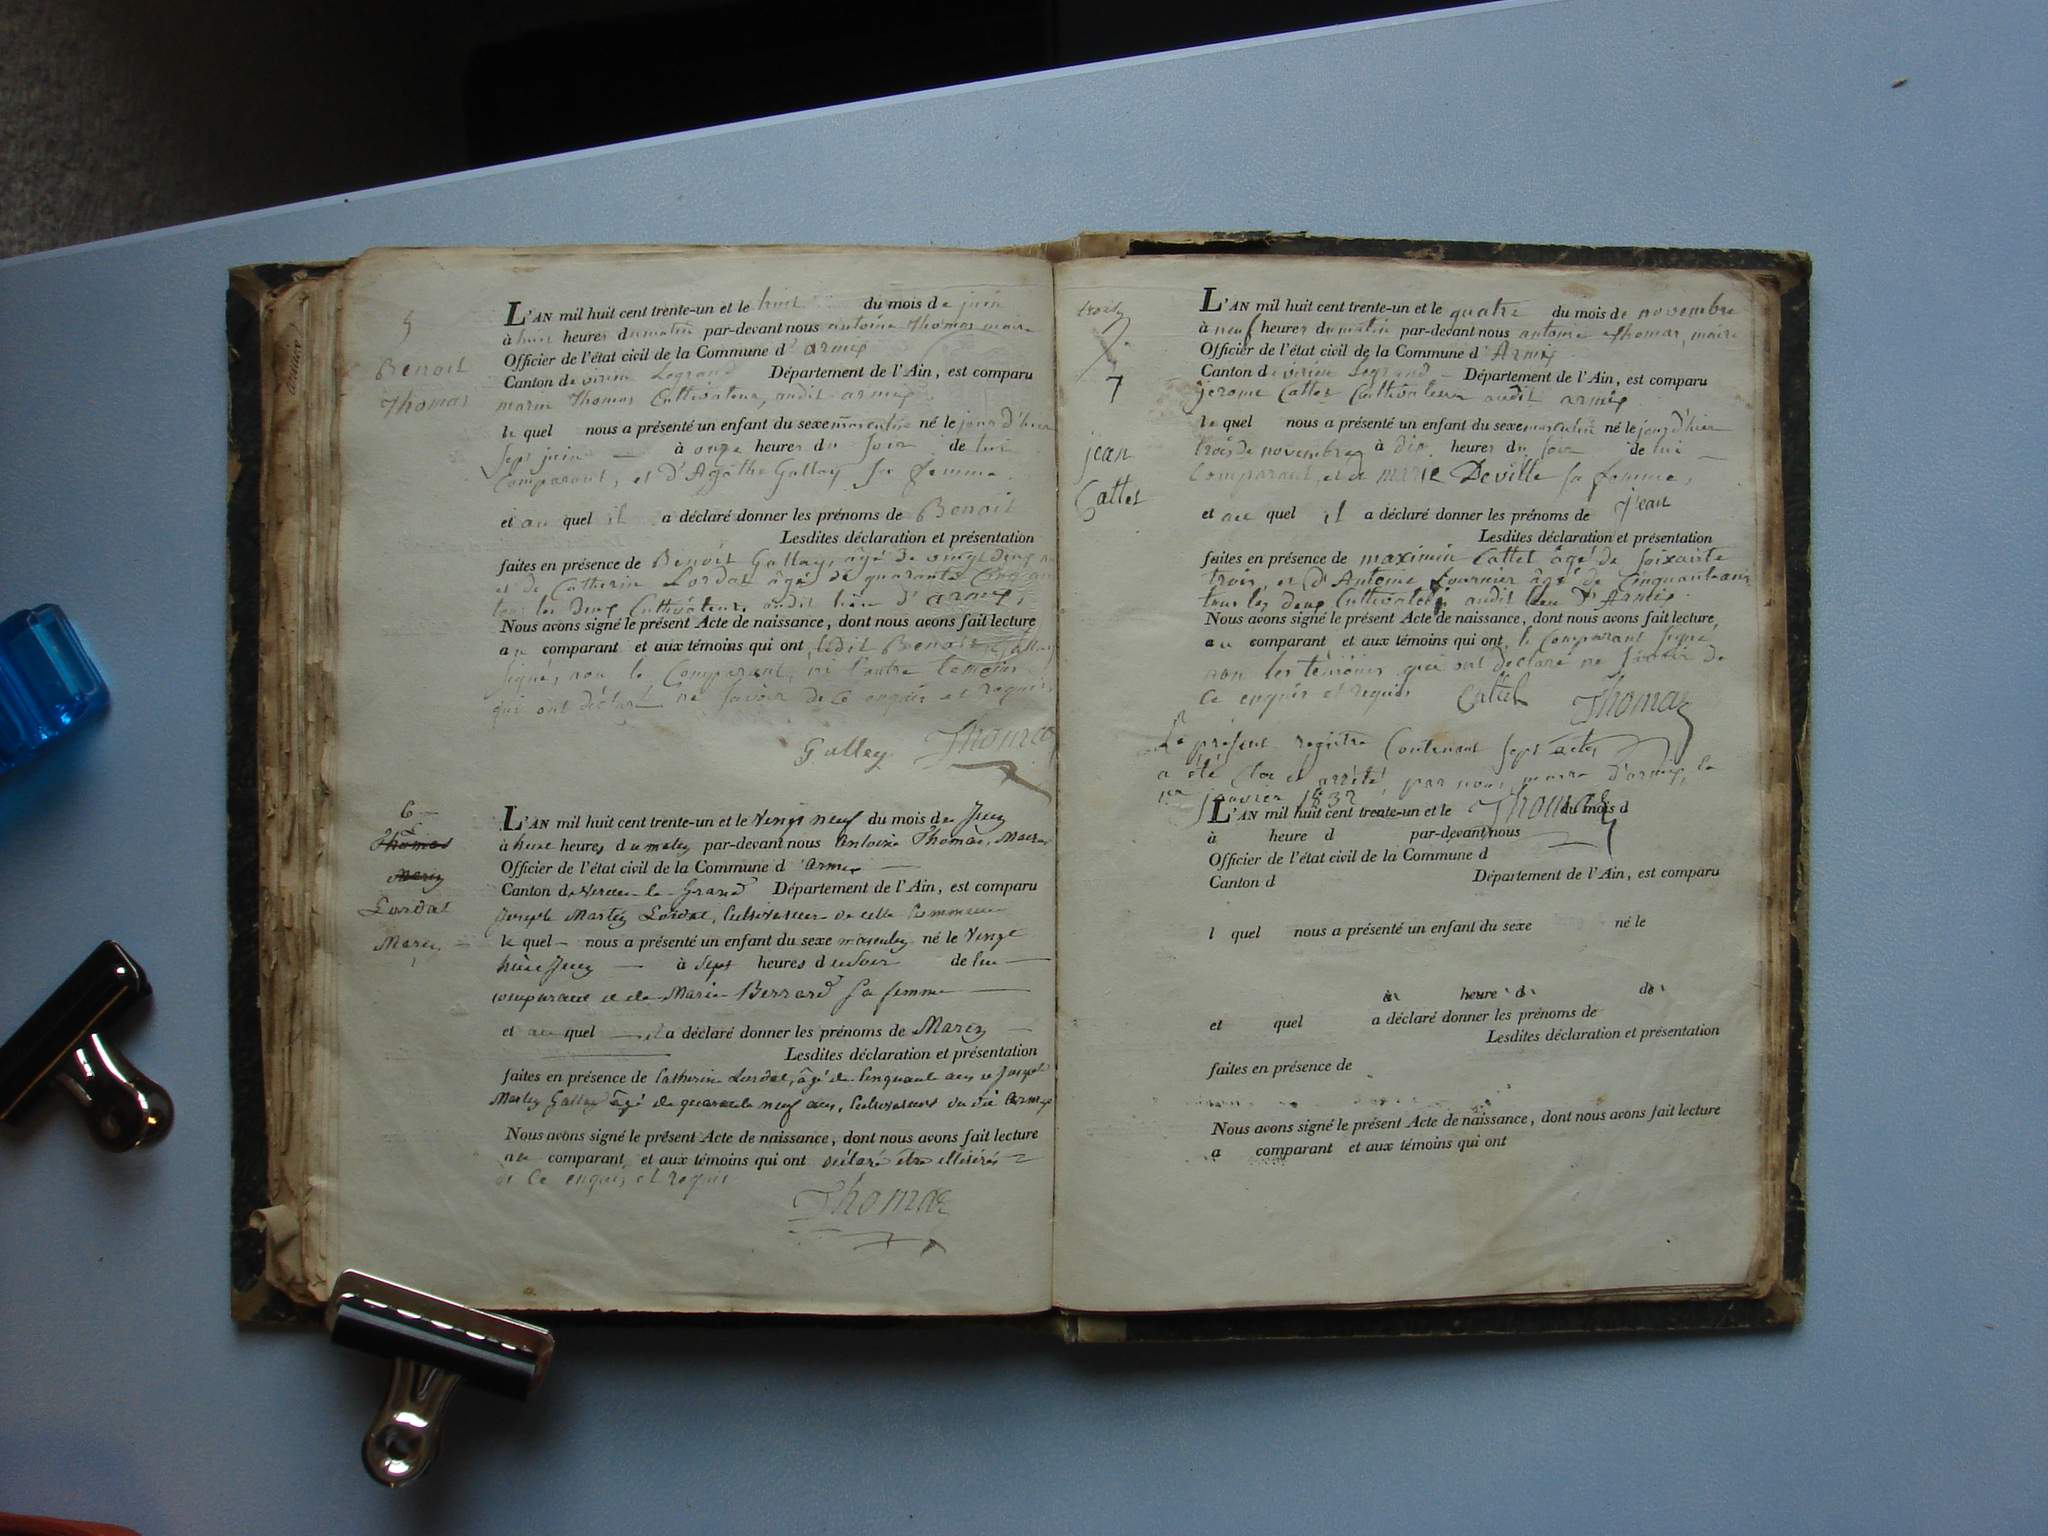 5
Benoit
Thomas
L'AN mil huit cent trente-un et le huit du mois de juin
à huit heures du matin par-devant nous antoine Thomas maire
Officier de l'état civil de la Commune d'armix
Canton de virieu Legrand Département de l'Ain, est comparu
marin Thomas Cultivateur, audit armix
le quel nous a présenté un enfant du sexe masculin né le jour d'hier
sept juin à onze heures du soir de lui
Comparant, et d'Agathe Gallay sa femme
et au quel il a déclaré donner les prénoms de Benoit
Lesdites déclaration et présentation
faites en présence de Benoit Gallay, âgé de vingt deux
et de Catherin Lordat âgé de quarante Cinq ans
tous les deux Cultivateurs audit lieu d'armix,
Nous avons signé le présent Acte de naissance, dont nous avons fait lecture
au comparant et aux témoins qui ont ledit Benoit Gallay
signé, non le Comparant, ni l'autre temoins
qui ont déclaré ne savoir de ce enquis et requis,
Galley Thomas
6
Thomas
Marin
Lordat
Marin
L'AN mil huit cent trente-un et le vingt neuf du mois de Juin
à huit heures du matin par-devant nous Antoine Thomas, Maire
Officier de l'état civil de la Commune d'armix
Canton de Virieu-le-Grand Département de l'Ain, est comparu
Joseph Martin Lordat, Cultivateur de cette Commune
le quel nous a présenté un enfant du sexe masculin né le vingt
huit Juin à sept heures du soir de lui
comparant et de Marie Berrard sa femme
et au quel il a déclaré donner les prénoms de Marin
Lesdites déclaration et présentation
faites en présence de Catherin Lordat, âgé de cinquante ans et Joseph
Martin Gallay âgé de quarante neuf ans, Cultivateurs du dit Armix
Nous avons signé le présent Acte de naissance, dont nous avons fait lecture
au comparant et aux témoins qui ont déclaré être illitérés
de ce enquis et requis
Thomas
7
jean
Cattet
L'AN mil huit cent trente-un et le quatre du mois de novembre
à neuf heures du matin par-devant nous antoine Thomas, maire
Officier de l'état civil de la Commune d'Armix
Canton de virieu Legrand Département de l'Ain, est comparu
jerome Cattet Cultivateur audit armix
le quel nous a présenté un enfant du sexe masculin né le jour d'hier
trois de novembre à dix heures du soir de lui
Comparant, et de marie Deville sa femme,
et au quel il a déclaré donner les prénoms de jean
Lesdites déclaration et présentation
faites en présence de maximin Cattet âgé de soixante
trois, et d'Antoine fournier âgé de Cinquante ans
tous les deux Cultivateurs audit lieu d'Armix.
Nous avons signé le présent Acte de naissance, dont nous avons fait lecture,
au comparant et aux témoins qui ont, le Comparant signé,
non les témoins qui ont declaré ne savoir de
ce enquis et requis Cattet Thomas
Le présent registre Contenant sept actes
a été clos et arrêté par nous, maire d'armix, le
1er janvier 1832
Thomas
L'AN mil huit cent trente-un et le du mois d
à heure d par-devant nous
Officier de l'état civil de la Commune d
Canton d Département de l'Ain, est comparu
l quel nous a présenté un enfant du sexe né le
à heure d de
et quel a déclaré donner les prénoms de
Lesdites déclaration et présentation
faites en présence de
Nous avons signé le présent Acte de naissance, dont nous avons fait lecture
a comparant et aux témoins qui ont